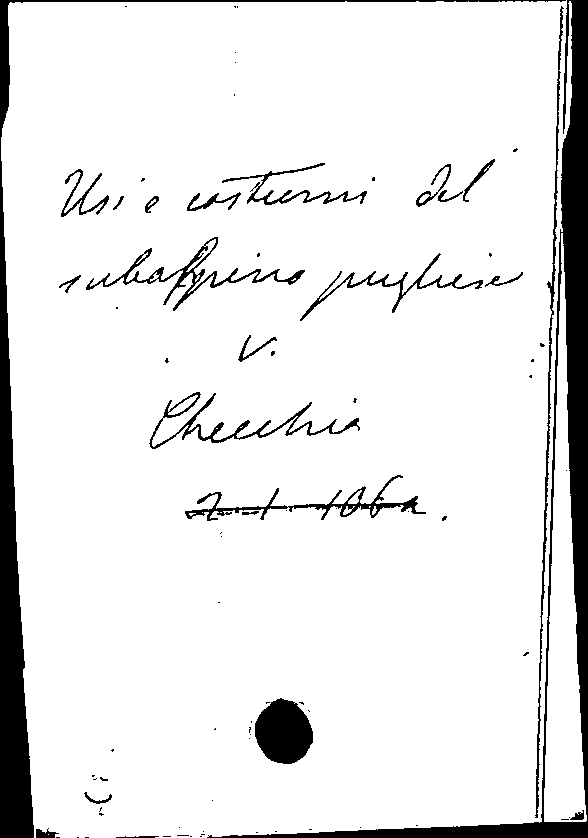 Usi e costumi del
subappenino pugliese
v.
Checchia
2-1-106a.